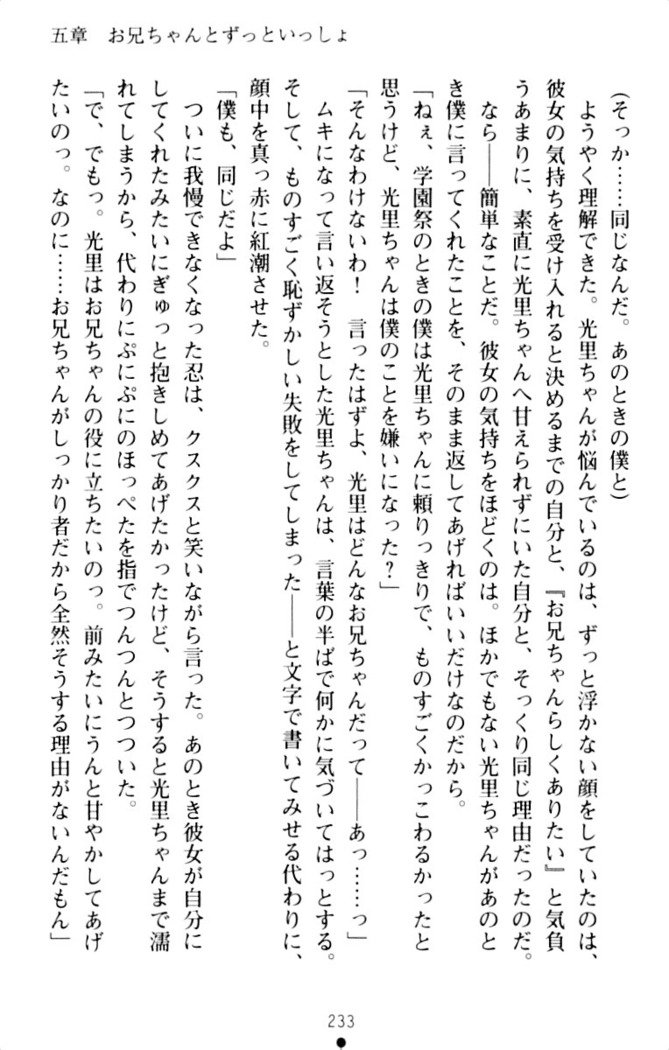 五章　お兄ちゃんとずっといっしょ
(そっか……同じなんだ。あのときの僕と)
　ようやく理解できた。光里ちゃんが悩んでいるのは、ずっと浮かない顔をしていたのは、
彼女の気持ちを受け入れると決めるまでの自分と、『お兄ちゃんらしくありたい』と気負
うあまりに、素直に光里ちゃんへ甘えられずにいた自分と、そっくり同じ理由だったのだ。
　なら――簡単なことだ。彼女の気持ちをほどくのは。ほかでもない光里ちゃんがあのと
き僕に言ってくれたことを、そのまま返してあげればいいだけなのだから。
「ねぇ、学園祭のときの僕は光里ちゃんに頼りっきりで、ものすごくかっこわるかったと
思うけど、光里ちゃんは僕のことを嫌いになった？」
「そんなわけないわ！　言ったはずよ、光里はどんなお兄ちゃんだって――あっ……っ」
　ムキになって言い返そうとした光里ちゃんは、言葉の半ばで何かに気づいてはっとする。
そして、ものすごく恥ずかしい失敗をしてしまった――と文字で書いてみせる代わりに、
顔中を真っ赤に紅潮させた。
「僕も、同じだよ」
　ついに我慢できなくなった忍は、クスクスと笑いながら言った。あのとき彼女が自分に
してくれたみたいにぎゅっと抱きしめてあげたかったけど、そうすると光里ちゃんまで濡
れてしまうから、代わりにぷにぷにのほっぺたを指でつんつんとつついた。
「で、でもっ。光里はお兄ちゃんの役に立ちたいのっ。前みたいにうんと甘やかしてあげ
たいのっ。なのに……お兄ちゃんがしっかり者だから全然そうする理由がないんだもん」
233